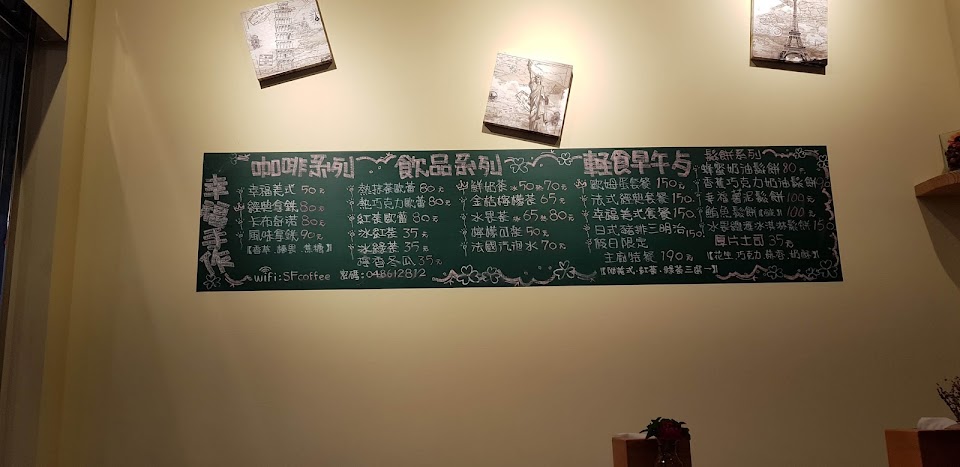 幸福手作
咖啡系列
幸福美式 50元
經典拿鐵 80元
卡布奇諾 80元
風味拿鐵 90元
【香草.榛果.焦糖】
wifi:SFcoffee 密碼:048612812
飲品系列
熱抹茶歐蕾 80元
熱巧克力歐蕾 80元
紅茶歐蕾 80元
冰紅茶 35元
冰綠茶 35元
冬瓜 35元
鮮奶茶 冰50熱70元
金桔檸檬茶 65元
水果茶 冰65熱80元
檸檬可樂 50元
法國氣泡水 70元
輕食早午与
歐姆蛋套餐 150元
法式經典套餐 150元
幸福美式套餐 150元
日式雞排三明治 150元
假日限定
主廚特餐 190元
【附美式.紅茶.綠茶三選一】
鬆餅系列
蜂蜜奶油鬆餅 80元
香蕉巧克力奶油鬆餅 90
幸福薯泥鬆餅 100元
鮪魚鬆餅 100元
水果雙淇冰淇淋鬆餅 150
厚片土司 35元
【花生.巧克力.蒜香.奶酥】